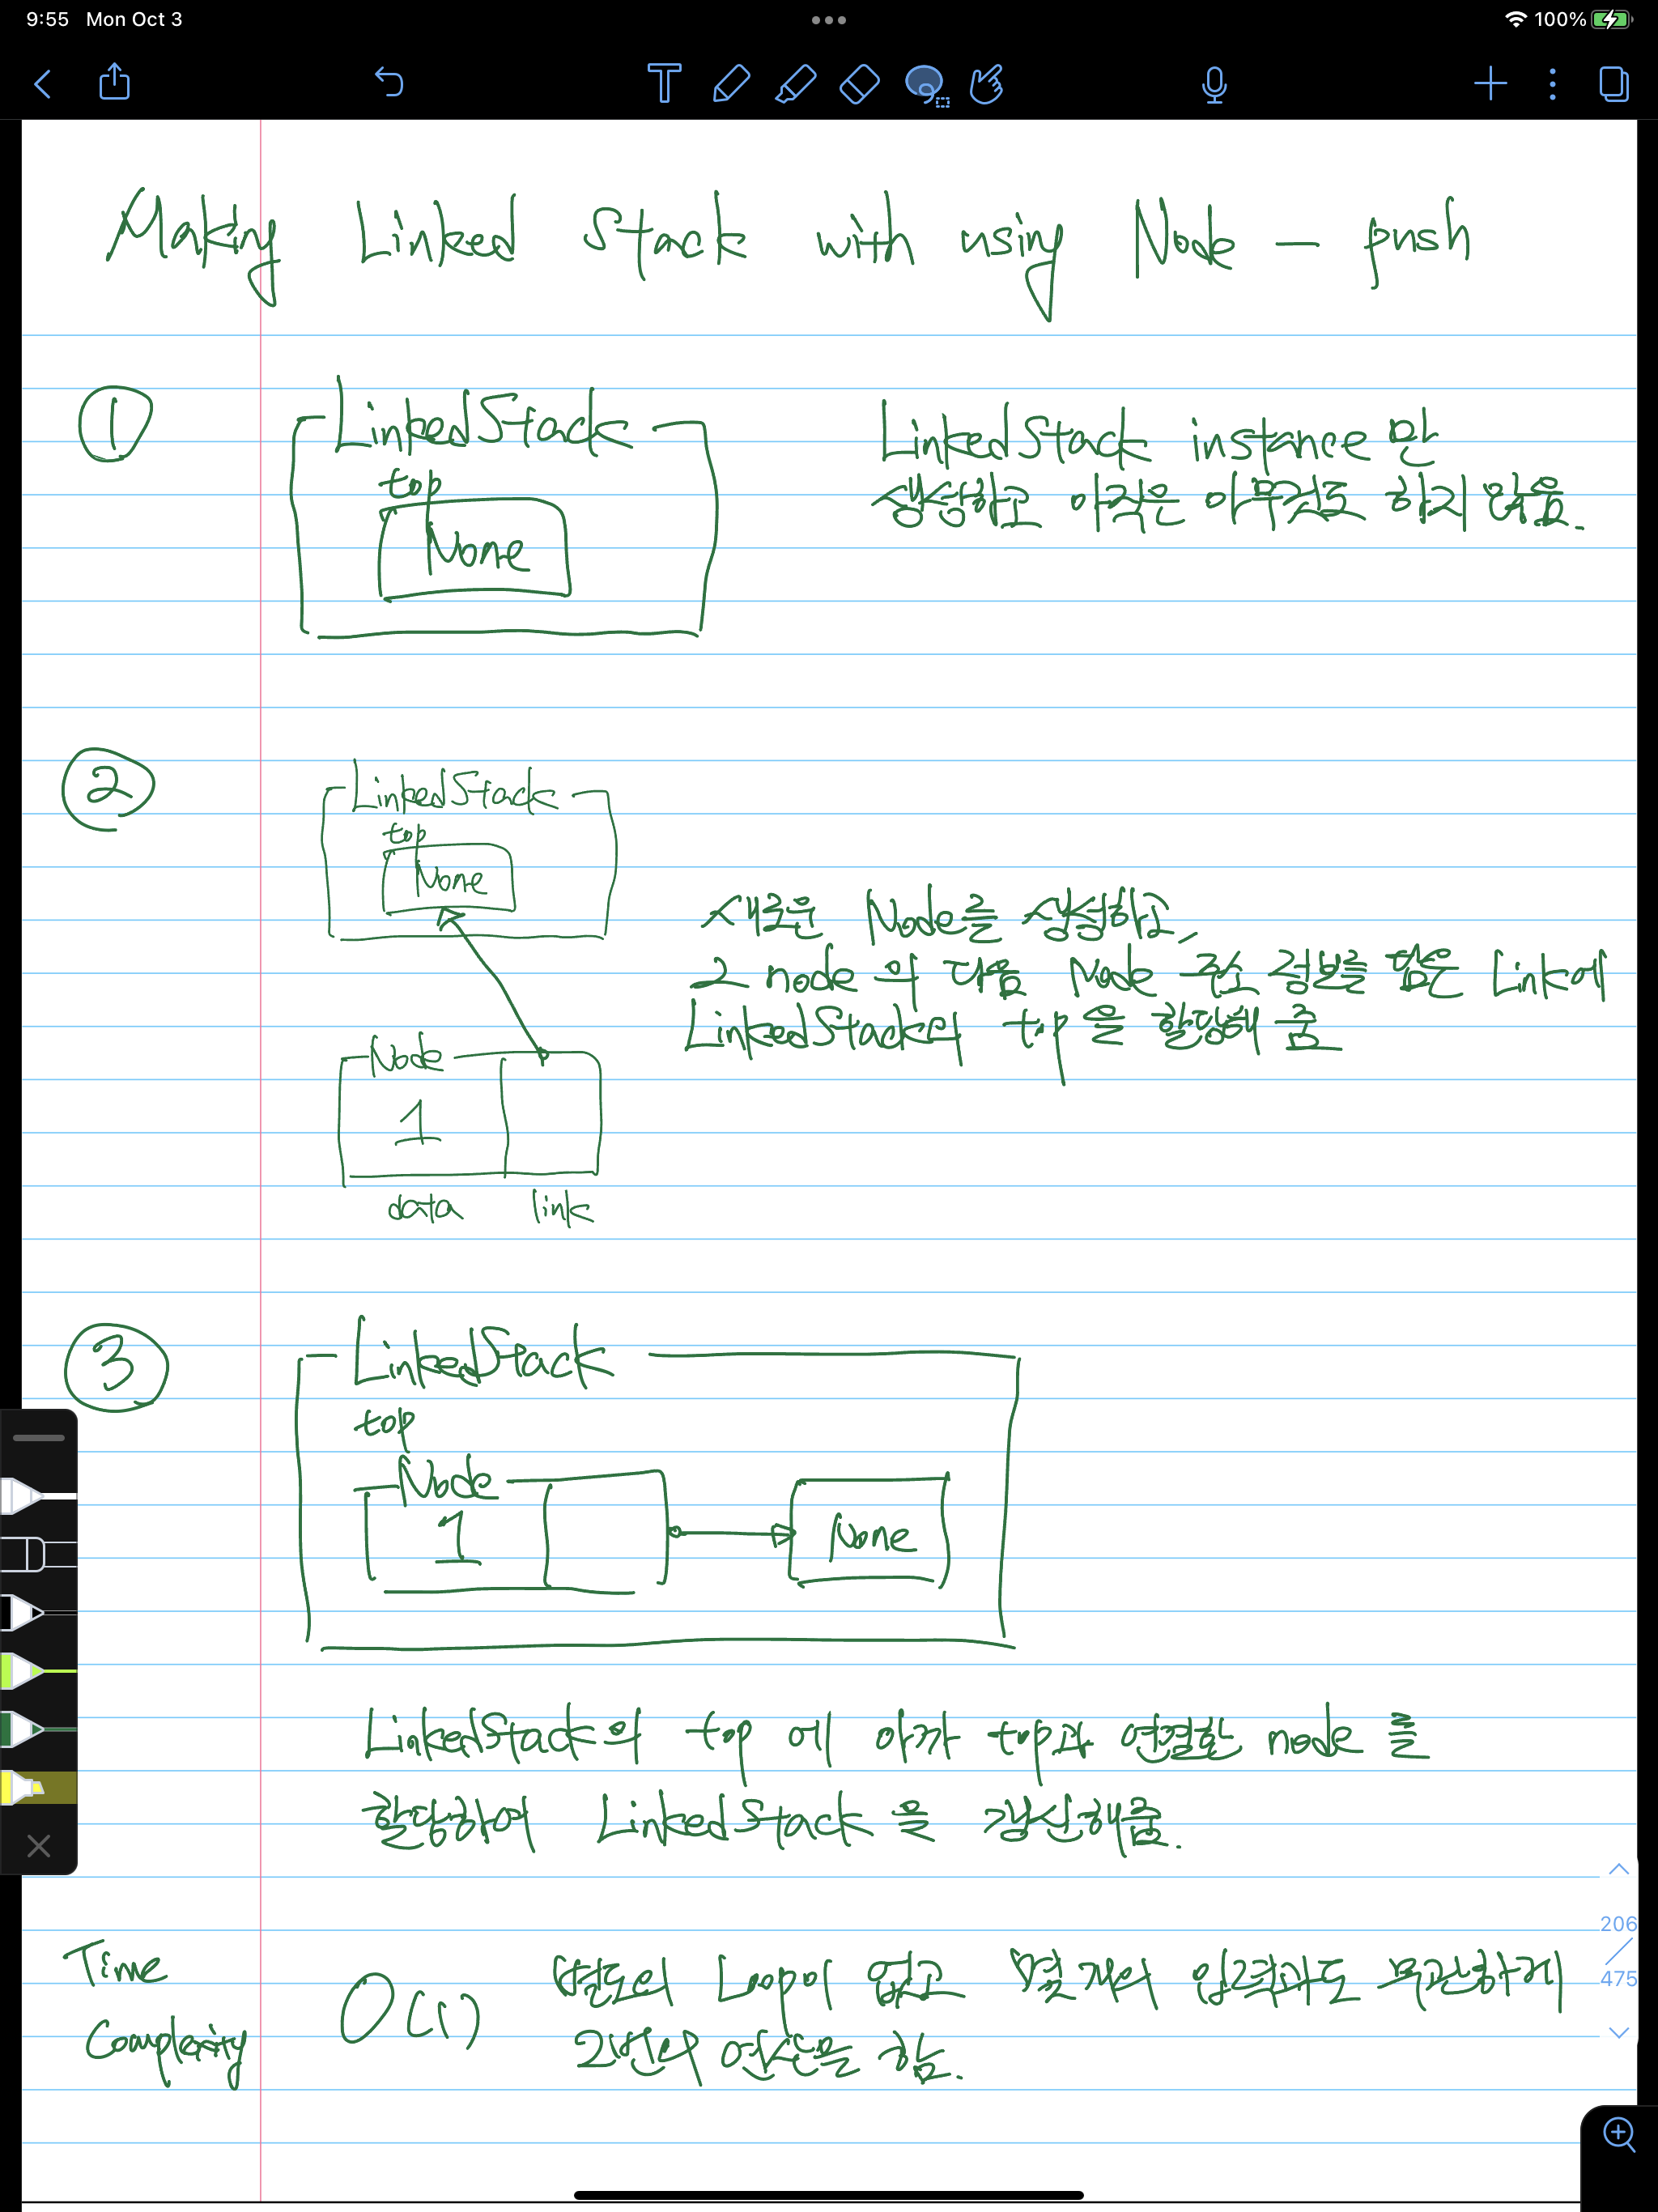 9:55 Mon Oct 3
100%
Making Linked Stack with using Node - push
1
LinkedStack
top
None
LinkedStack instance 만
생성하고 아직은 아무것도 하지 않음.
2
LinkedStack
top
None
새로운 Node를 생성하고,
그 node의 다음 Node 주소 정보를 담은 Link에
LinkedStack의 top을 할당해 줌
Node
1
data link
3
LinkedStack
top
Node
1
None
LinkedStack의 top에 아까 top과 연결한 node를
할당하여 LinkedStack을 갱신해줌.
Time
Complexity
O(1)
별도의 Loop이 없고 몇 개의 입력과도 무관하게
2번의 연산을 함.
206
475